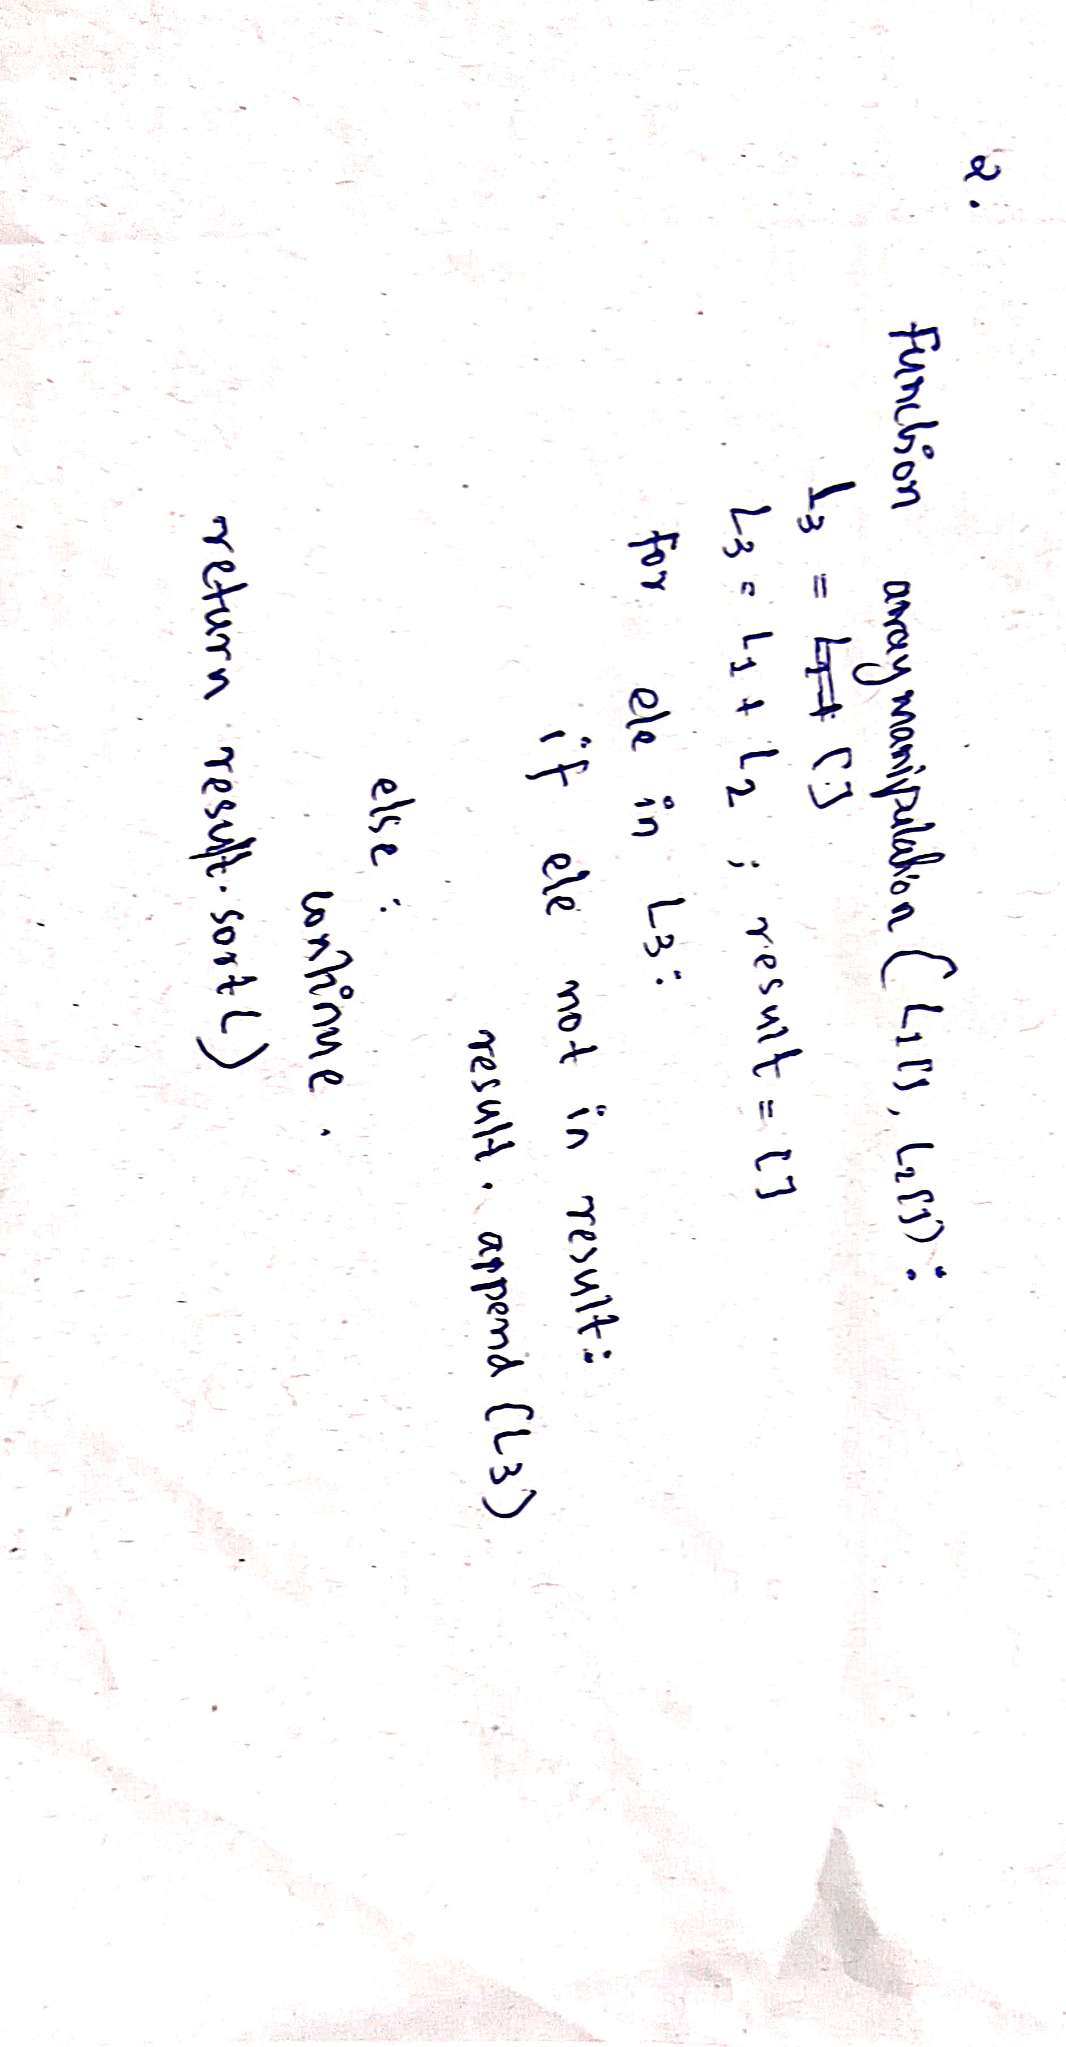 2.
Function arraymanipulation (L1[], L2[]):
L3 = []
L3 = L1 + L2 ; result = []
for ele in L3:
if ele not in result:
result. append (L3)
else :
continue.
return result. sort()